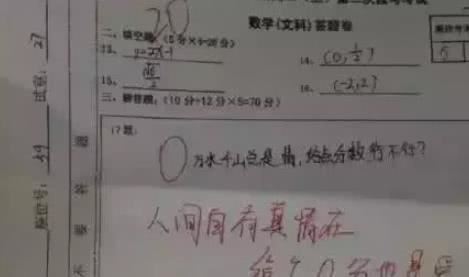 20
数学(文科)答题卷
二、填空题:(5分×4=20分)
13、y=2x-1
14、(0,1/2)
15、
16、(-2,2)
三、解答题:(10分+12分×5=70分)
17题:
0 万水千山总是情,给点分数行不行?
人间自有真情在
给个0分也是
试室: 27
座位号: 29
答
要
不